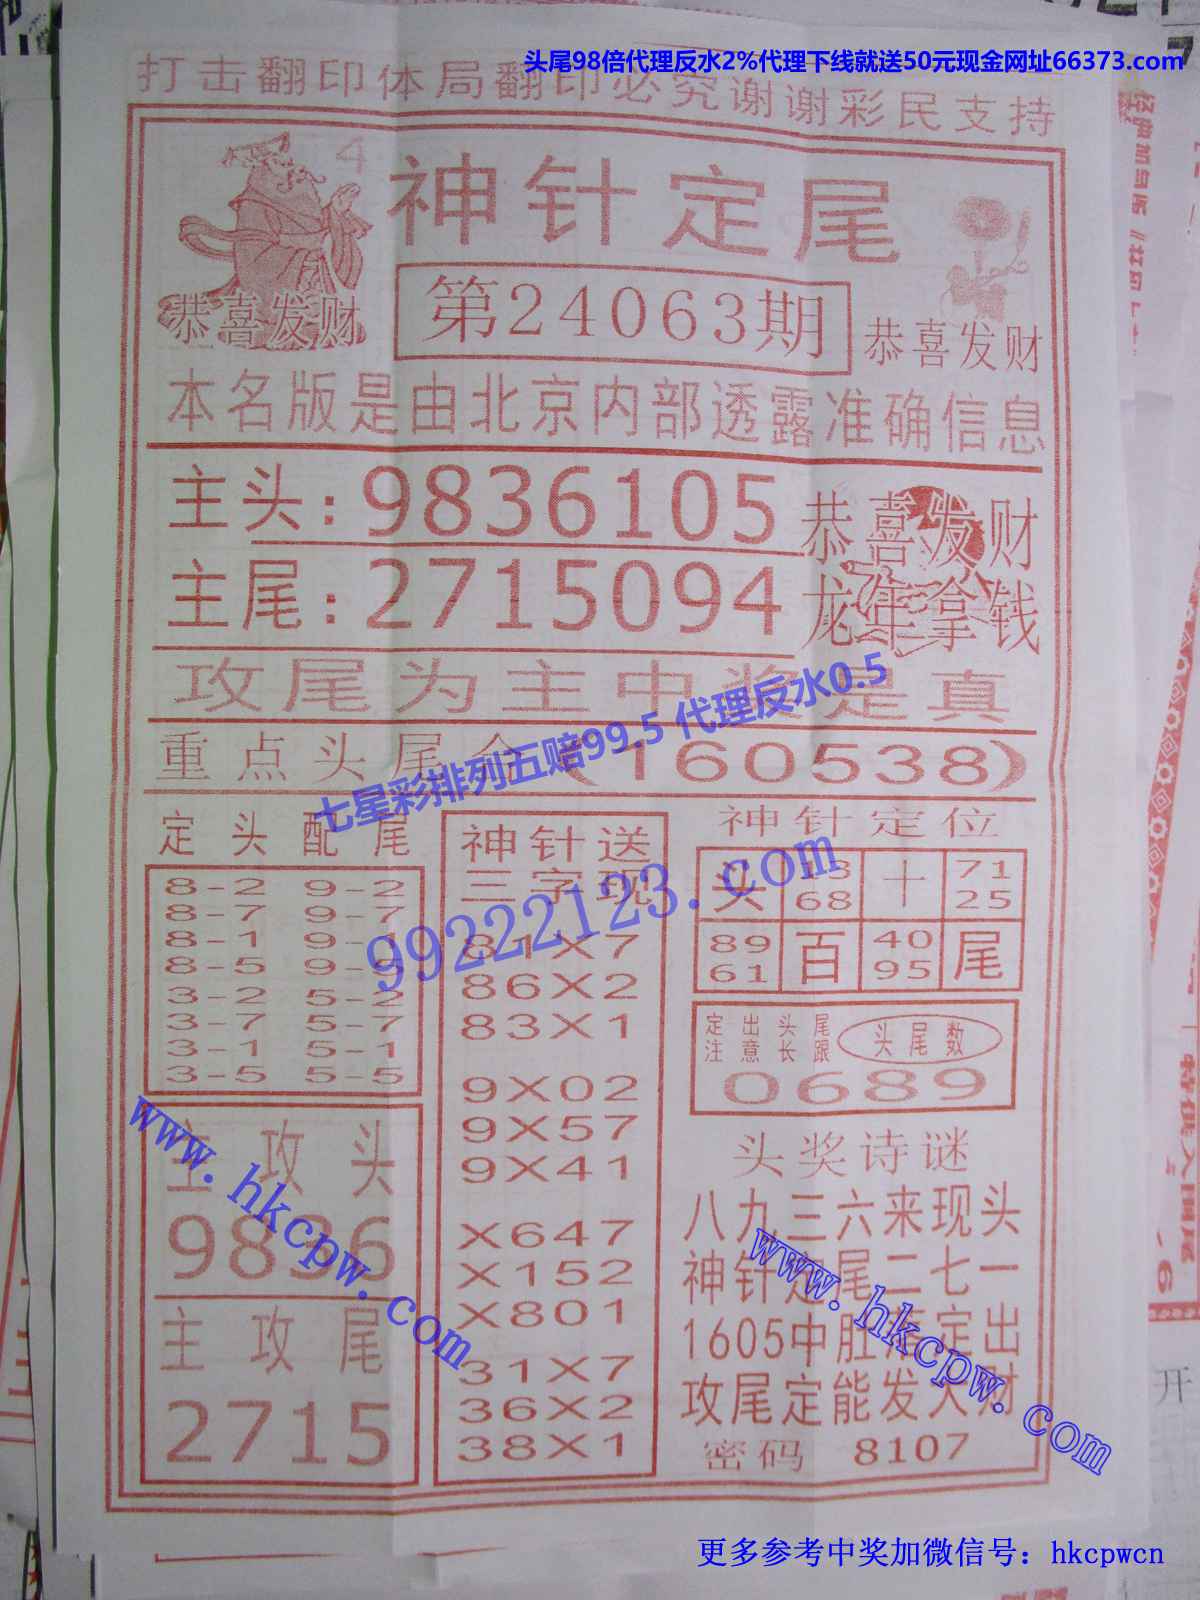 头尾98倍代理反水2%代理下线就送50元现金网址66373.com
打击翻印体局翻印必究谢谢彩民支持
4
神针定尾
第24063期
恭喜发财
恭喜发财
本名版是由北京内部透露准确信息
主头:9836105
恭喜发财
主尾:2715094
龙年拿钱
攻尾为主中奖是真
七星彩排列五赔99.5 代理反水0.5
重点头尾合(160538)
定头配尾
8-2 9-2
8-7 9-7
8-1 9-1
8-5 9-5
3-2 5-2
3-7 5-7
3-1 5-1
3-5 5-5
主攻头
9836
主攻尾
2715
神针送
三字现
81X7
86X2
83X1
9X02
9X57
9X41
X647
X152
X801
31X7
36X2
38X1
99222123.com
神针定位
头 68 十 71 25
89 61 百 40 95 尾
定出头尾
注意长跟
头尾数
0689
头奖诗谜
八九三六来现头
神针定尾二七一
1605中肚落定出
攻尾定能发大财
密码 8107
www.hkcpw.com
www.hkcpw.com
开
更多参考中奖加微信号：hkcpwcn